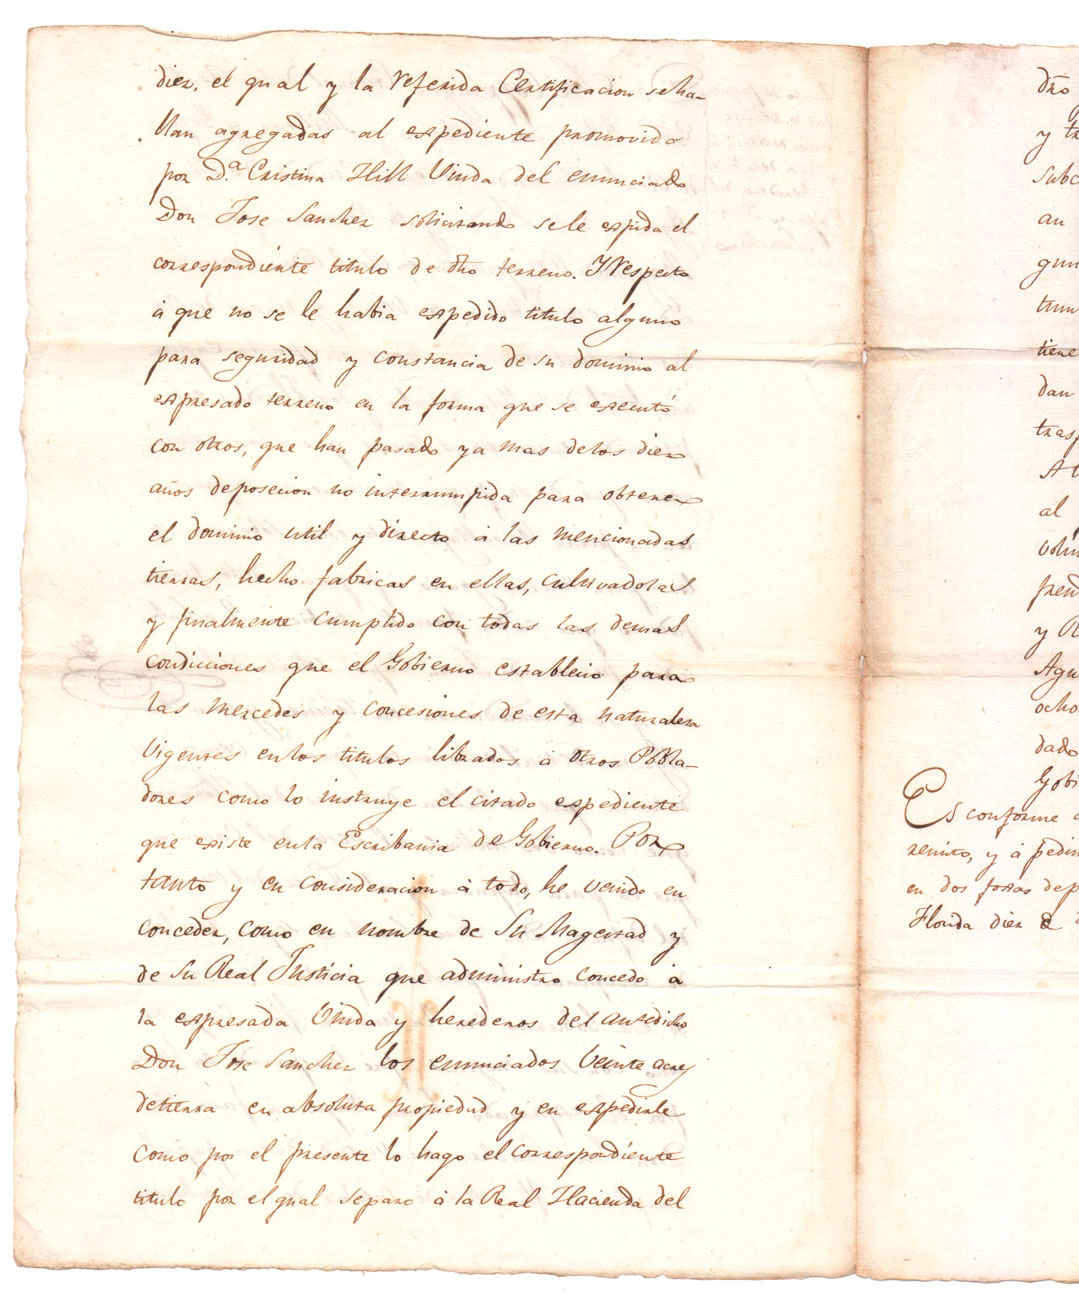 diez, el qual y la referida Certificacion se ha-
llan agregadas al expediente promovido
por D.ª Cristina Hill Viuda del enunciado
Don Jose Sanchez solicitando se le espida el
correspondiente titulo de dho terreno. Y respecto
á que no se le habia espedido titulo alguno
para seguridad y constancia de su dominio al
espresado terreno en la forma que se esecutó
con otros, que han pasado ya mas delos diez
años deposecion no interrumpida para obtener
el dominio util y directo á las mencionadas
tierras, hecho fabricas en ellas, cultivadolas
y finalmente cumplido con todas las demas
condiciones que el Gobierno establecio para
las mercedes y concesiones de esta naturaleza
vigentes enlos titulos librados á otros Pobla-
dores como lo instruye el citado espediente
que existe enla Escribania de Gobierno. Por
tanto y en consideracion á todo, he venido en
conceder, como en nombre de Su Magestad y
de Su Real Justicia que administro concedo á
la espresada Viuda y herederos del antedicho
Don Jose Sanchez los enunciados veinte acres
detierra en absoluta propiedad y en espedirle
como por el presente lo hago el correspondiente
titulo por el qual separo á la Real Hacienda del
dro
y tr
subc
an
gun
tum
tiene
dan
trasp
al
volun
pren
y R
Agu
ocho
dado
Gobi
Es conforme
remito, y á pedim
en dos fojas de p
Florida diez de